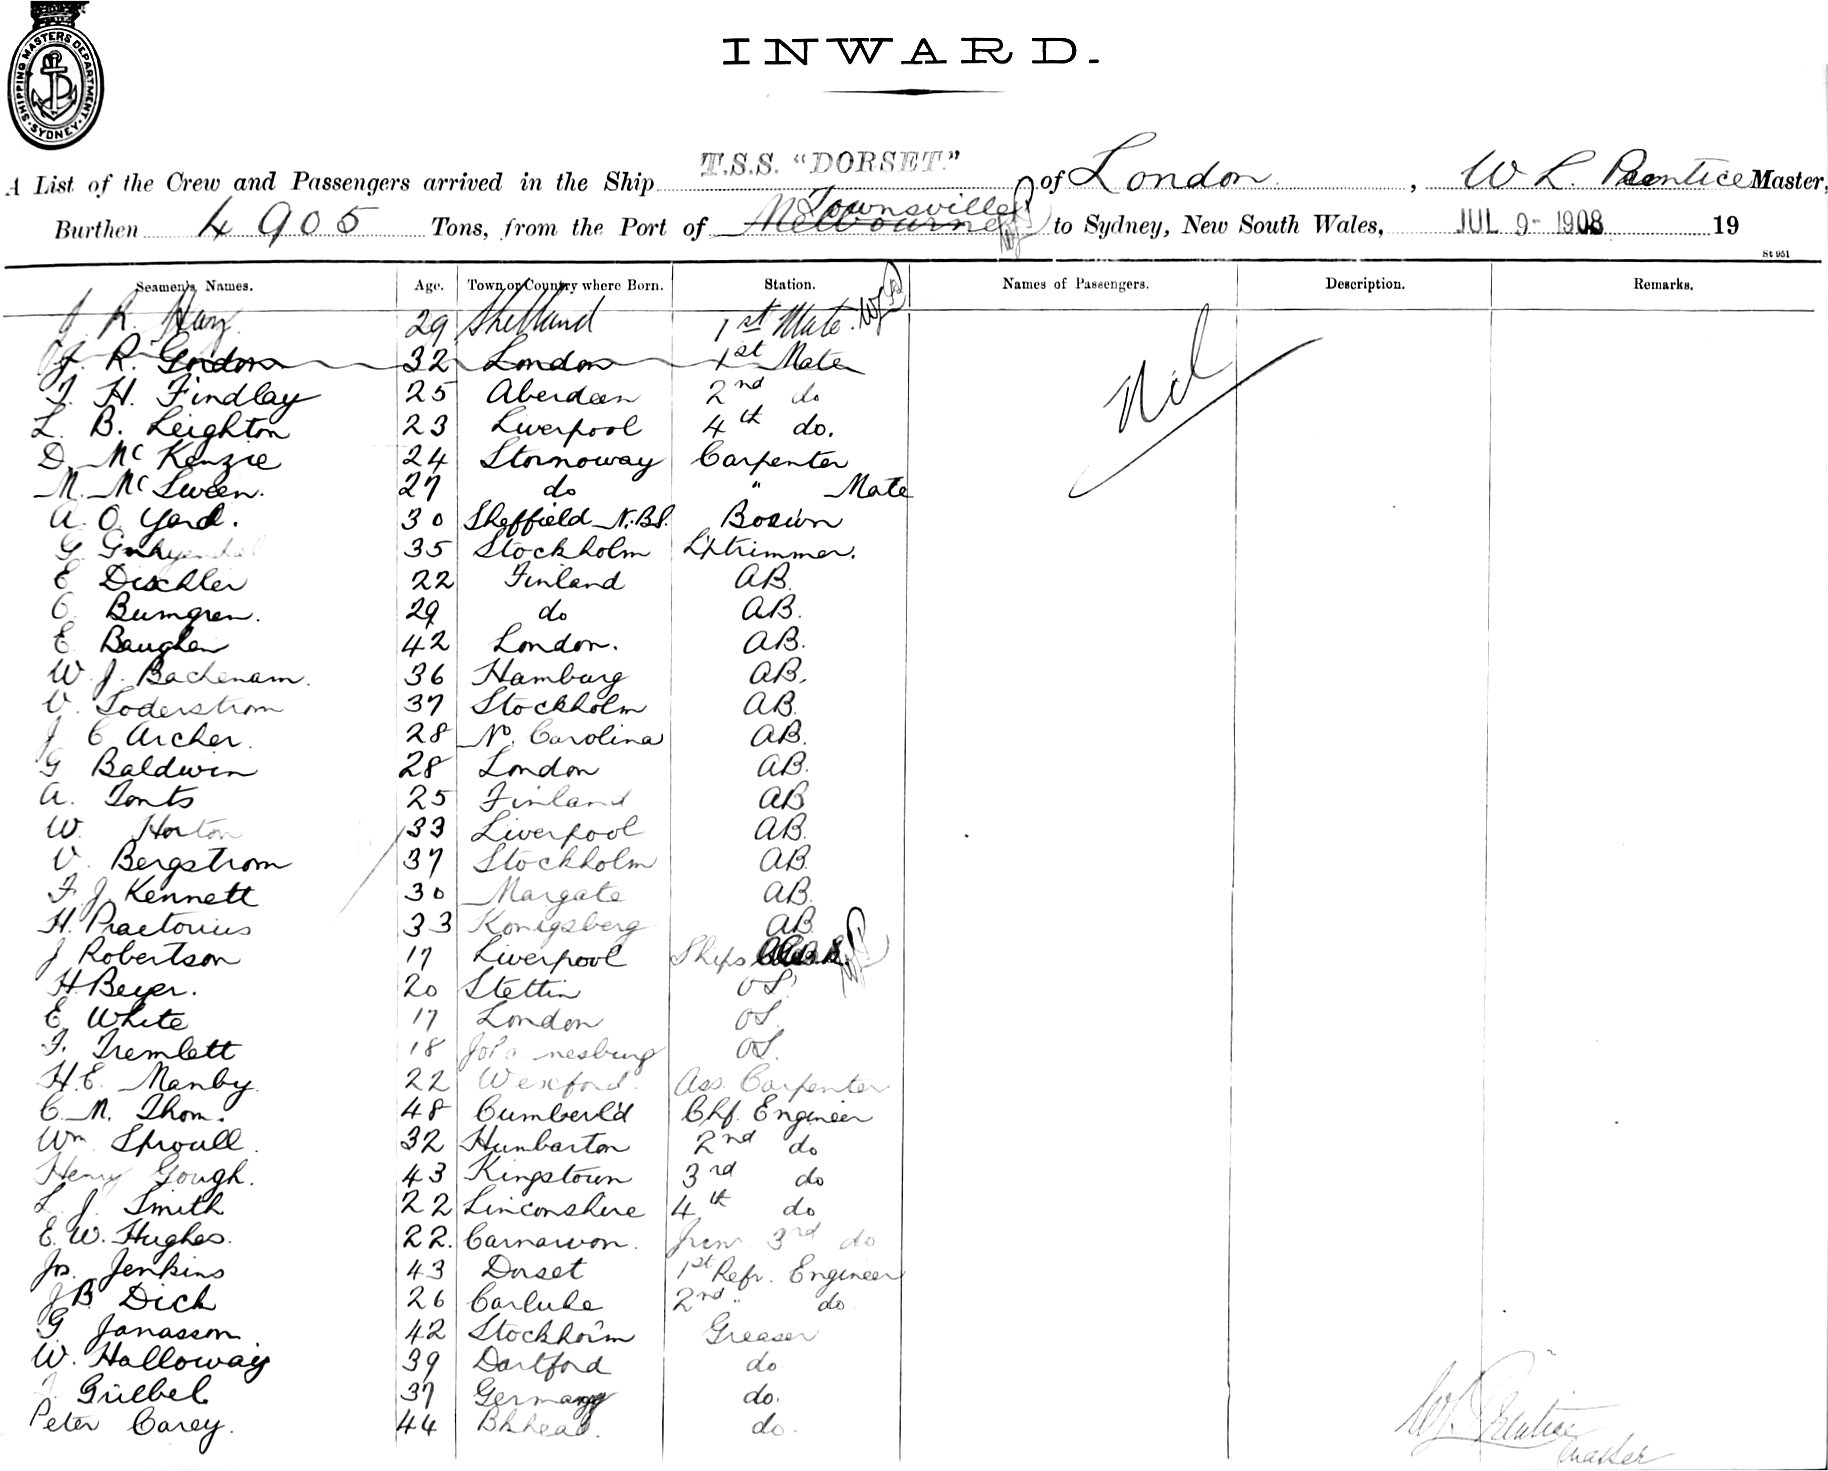 SHIPPING MASTERS DEPARTMENT. SYDNEY
INWARD.
A List of the Crew and Passengers arrived in the Ship T.S.S. "DORSET." of London, W L Prentice Master,
Burthen 4905 Tons, from the Port of Melbourne Townsville to Sydney, New South Wales, JUL 9- 1908 19
St 951
Seamen's Names. Age. Town or Country where Born. Station. Names of Passengers. Description. Remarks.
J. R. Hay. 29 Shetland 1st Mate
J. R. Gordon 32 London 1st Mate
T. H. Findlay 25 Aberdeen 2nd do Nil
L. B. Leighton 23 Liverpool 4th do.
D. McKenzie 24 Stornoway Carpenter
M. McSween. 27 do " Mate
A. O. Yard. 30 Sheffield N.B.S. Bosun
G. 35 Stockholm Lptrimmer.
E Dischler 22 Finland AB.
C. Bumgren. 29 do AB.
E Baughen 42 London. AB.
W. J. Bachenam. 36 Hamburg AB.
V. Soderstrom 37 Stockholm AB.
J C Archer. 28 No. Carolina AB.
G Baldwin 28 London AB.
A. Tonts 25 Finland AB
W. Horton 33 Liverpool AB.
V. Bergstrom 37 Stockholm AB.
F. J. Kennett 30 Margate AB.
H. Praetorius 33 Konigsberg AB
J Robertson 17 Liverpool Ships
H Beyer. 20 Stettin OS.
E. White 17 London OS.
F. Tremlett 18 Johannesburg OS.
H. E. Manby. 22 Wexford. Ass. Carpenter
C. M. Thom. 48 Cumberl'd Chf. Engineer
Wm Sproull. 32 Humbarton 2nd do
Henry Gough. 43 Kingstown 3rd do
L. J. Smith 22 Linconshire 4th do
E. W. Hughes. 22. Carnarvon. Junr 3rd do
Jos. Jenkins 43 Dorset 1st Refr. Engineer
J B Dick 26 Carluke 2nd " do
G. Janasson. 42 Stockholm Greaser
W. Halloway 39 Dartford do
J. Grilbel 37 Germany do.
Peter Carey. 44 Bkhead. do.
W L Prentice
Master